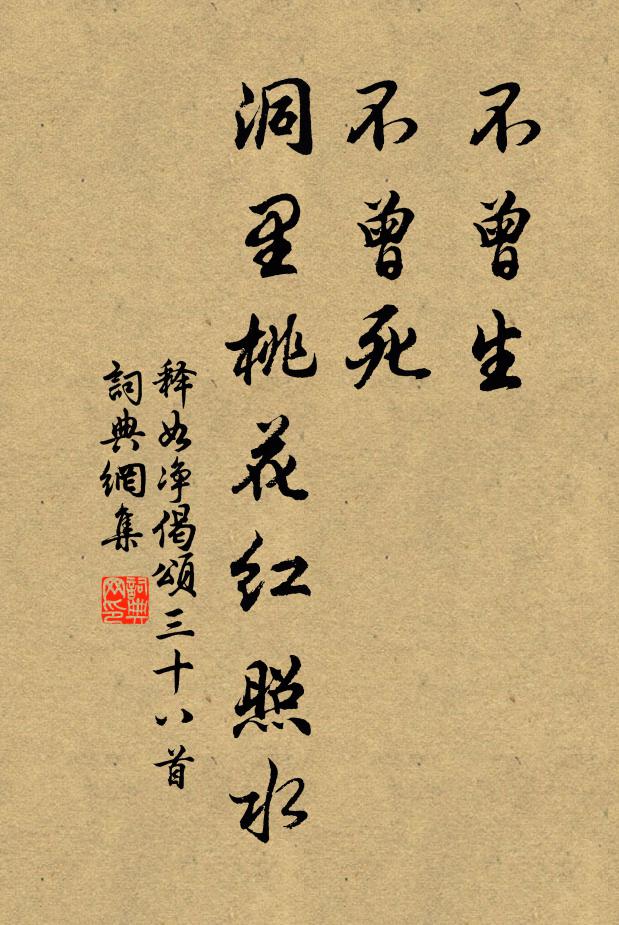 不曾生
不曾死
洞里桃花红照水
释如净偈頌三十八首
詞典網集
詞典
网印